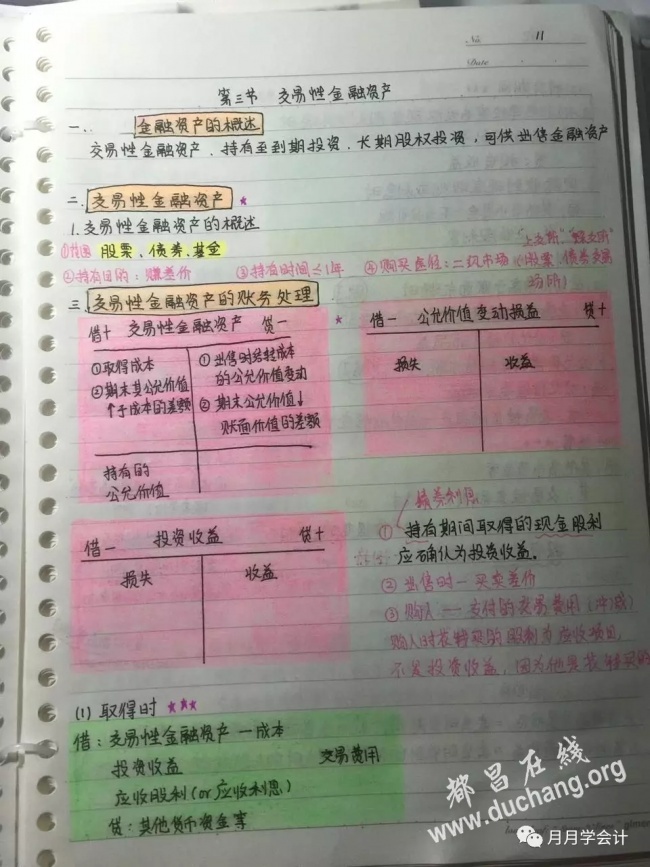 No. 11
Date
第三节 交易性金融资产
一. 金融资产的概述
交易性金融资产、持有至到期投资、长期股权投资、可供出售金融资产
二. 交易性金融资产 ★
1. 交易性金融资产的概述
① 股票、债券、基金
"上交所" "深交所"
②持有目的:赚差价 ③持有时间≤1年 ④购买途径:二级市场(股票、债券交易
场所)
三. 交易性金融资产的账务处理
借+ 交易性金融资产 贷一 ★
①取得成本
②期末其公允价值
↑于成本的差额
①出售时结转成本
的公允价值变动
②期末公允价值↓
账面价值的差额
持有的
公允价值
借一 公允价值变动损益 贷+
损失 收益
借一 投资收益 贷+
损失 收益
债券利息
① 持有期间取得的现金股利
应确认为投资收益。
② 出售时一买卖差价
③ 购入一支付的交易费用(冲减)
购入时 的股利为应收项目
不是投资收益,因为他是 买的
(1) 取得时 ★★★
借:交易性金融资产一成本
投资收益 交易费用
应收股利(or应收利息)
贷:其他货币资金等
都昌在线
www.duchang.org
月月学会计